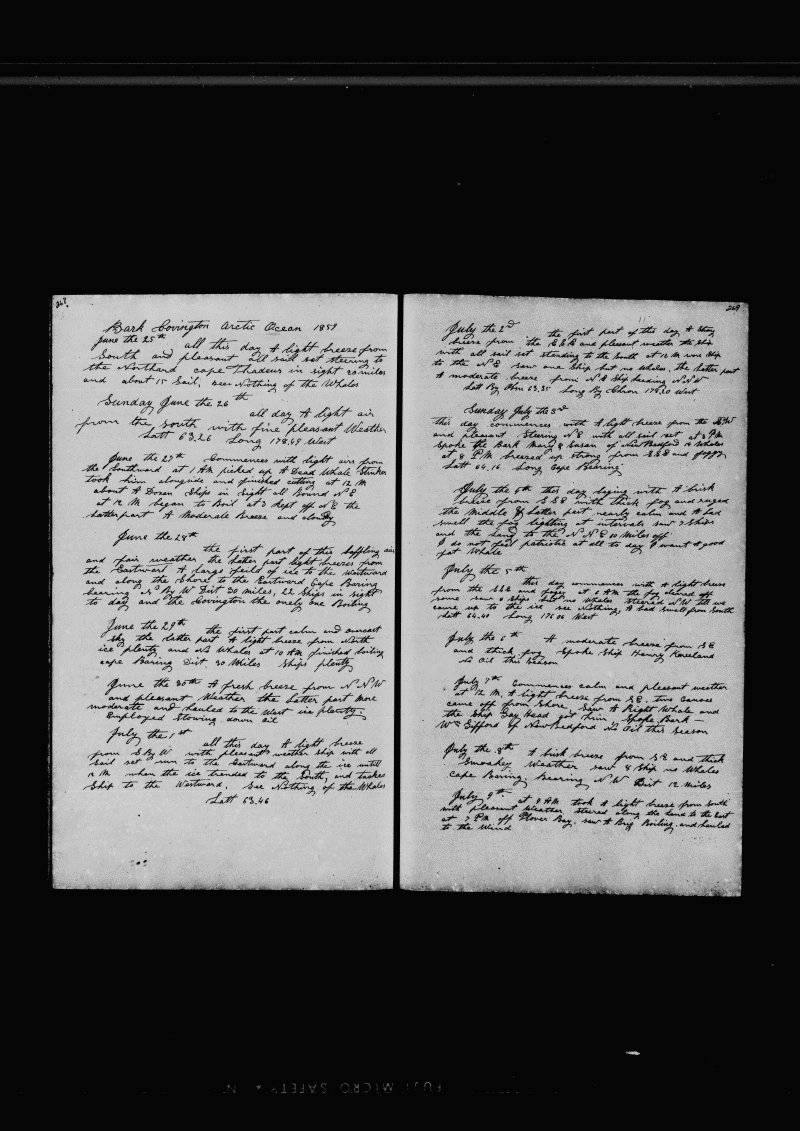 268.
Bark Covington Arctic Ocean 1859
June the 25th all this day A light breeze from
South and pleasant all sail set steering to
the Northard cape Thadeus in sight 20 miles
and about 15 Sail, see Nothing of the Whales
Sunday June the 26th
all day A light air
from the South with fine pleasant Weather
Latt 63,26 Long 178,49 West
June the 27th Commences with light airs from
the Southward at 1 AM picked up A Dead Whale Stinker
took him alongside and finished cutting at 12 M
about A Dozen Ships in sight all Bound N E
at 12 M began to Boil at 3 kept off N.E the
Latterpart A Moderate Breeze and cloudy
June the 28th
the first part of this baffling airs
and fair weather the latter part light breezes from
the Eastward A large feild of ice to the Westward
and along the Shore to the Eastward Cape Baring
bearing No By W Dist 20 miles, 22 Ships in sight
to day and the Covington the onely one Boiling
June the 29th
the first part calm and overcast
sky the latter part A light breeze from North
ice plenty and No Whales at 10 AM finished boiling
cape Baring Dist 30 Miles Ships plenty
June the 30th A fresh breeze from N.N.W
and pleasant Weather the Latter part more
moderate and hauled to the West ice plenty.
Employed Stowing down oil
July the 1st
all this day A light breeze
from S By W with pleasant weather Ship with all
Sail set run to the Eastward along the ice untill
12 M when the ice trended to the South, and tacked
Ship to the Westward. See Nothing of the Whales
Latt 63,46
269
July the 2nd the first part of this day A
breeze from the and pleasant weather the Ship
with all sail set standing to the South at 12 M Ship
to the N.E saw one Ship but no Whales, the latter part
A moderate breeze from N.E Ship heading N.N.W
Latt By Obvn 63,35 Long By Chron 178,20 West
Sunday July the 3rd
this day commences with A light breeze from the
and pleasant Steering N.E with all sail set at 3 PM
Spoke the Bark Mary & Susan of New Bedford Whales
at 8 P.M breezed up strong from and foggy
Latt 64.16 Long Cape Bearing
July the 4th this day begins with A brisk
breise from S.S.E with thick fog and ruged
the Middle & Latter part nearly calm and A bad
smell the fog lighting at intervals saw 7 Ships
and the Land to the N.N.E 10 Miles off
I do not feel patriotic at all to day I want A good
fat Whale
July the 5th
this day commences with A light breeze
from the SSE and foggy at 6 AM the fog cleared off
some saw 6 Ships but no Whales steered N.W till we
came up to the ice see Nothing, A bad smell from South
Latt 64.40 Long 176 04 West
July the 6th A moderate breeze from SE
and thick fog Spoke Ship Henry Kneeland
No Oil this Season
July 7th Commences calm and pleasant weather
at 12 M, A light breeze from SE, two canoes
came off from Shore, Saw A Right Whale and
the Ship Gay Head got him, Spoke Bark
Wm Gifford of New Bedford No Oil this Season
July the 8th A brisk breeze from S.E and thick
Smoakey Weather saw 8 Ship no Whales
Cape Baring, Bearing N W Dist 12 Miles
July 9th at 9 AM took A light breeze from South
with pleasant Weather, steered along the land to the East
at 7 PM off Plover Bay, saw A Brig Boiling. and hauled
to the Wind
FUJI MICRO SAFETY